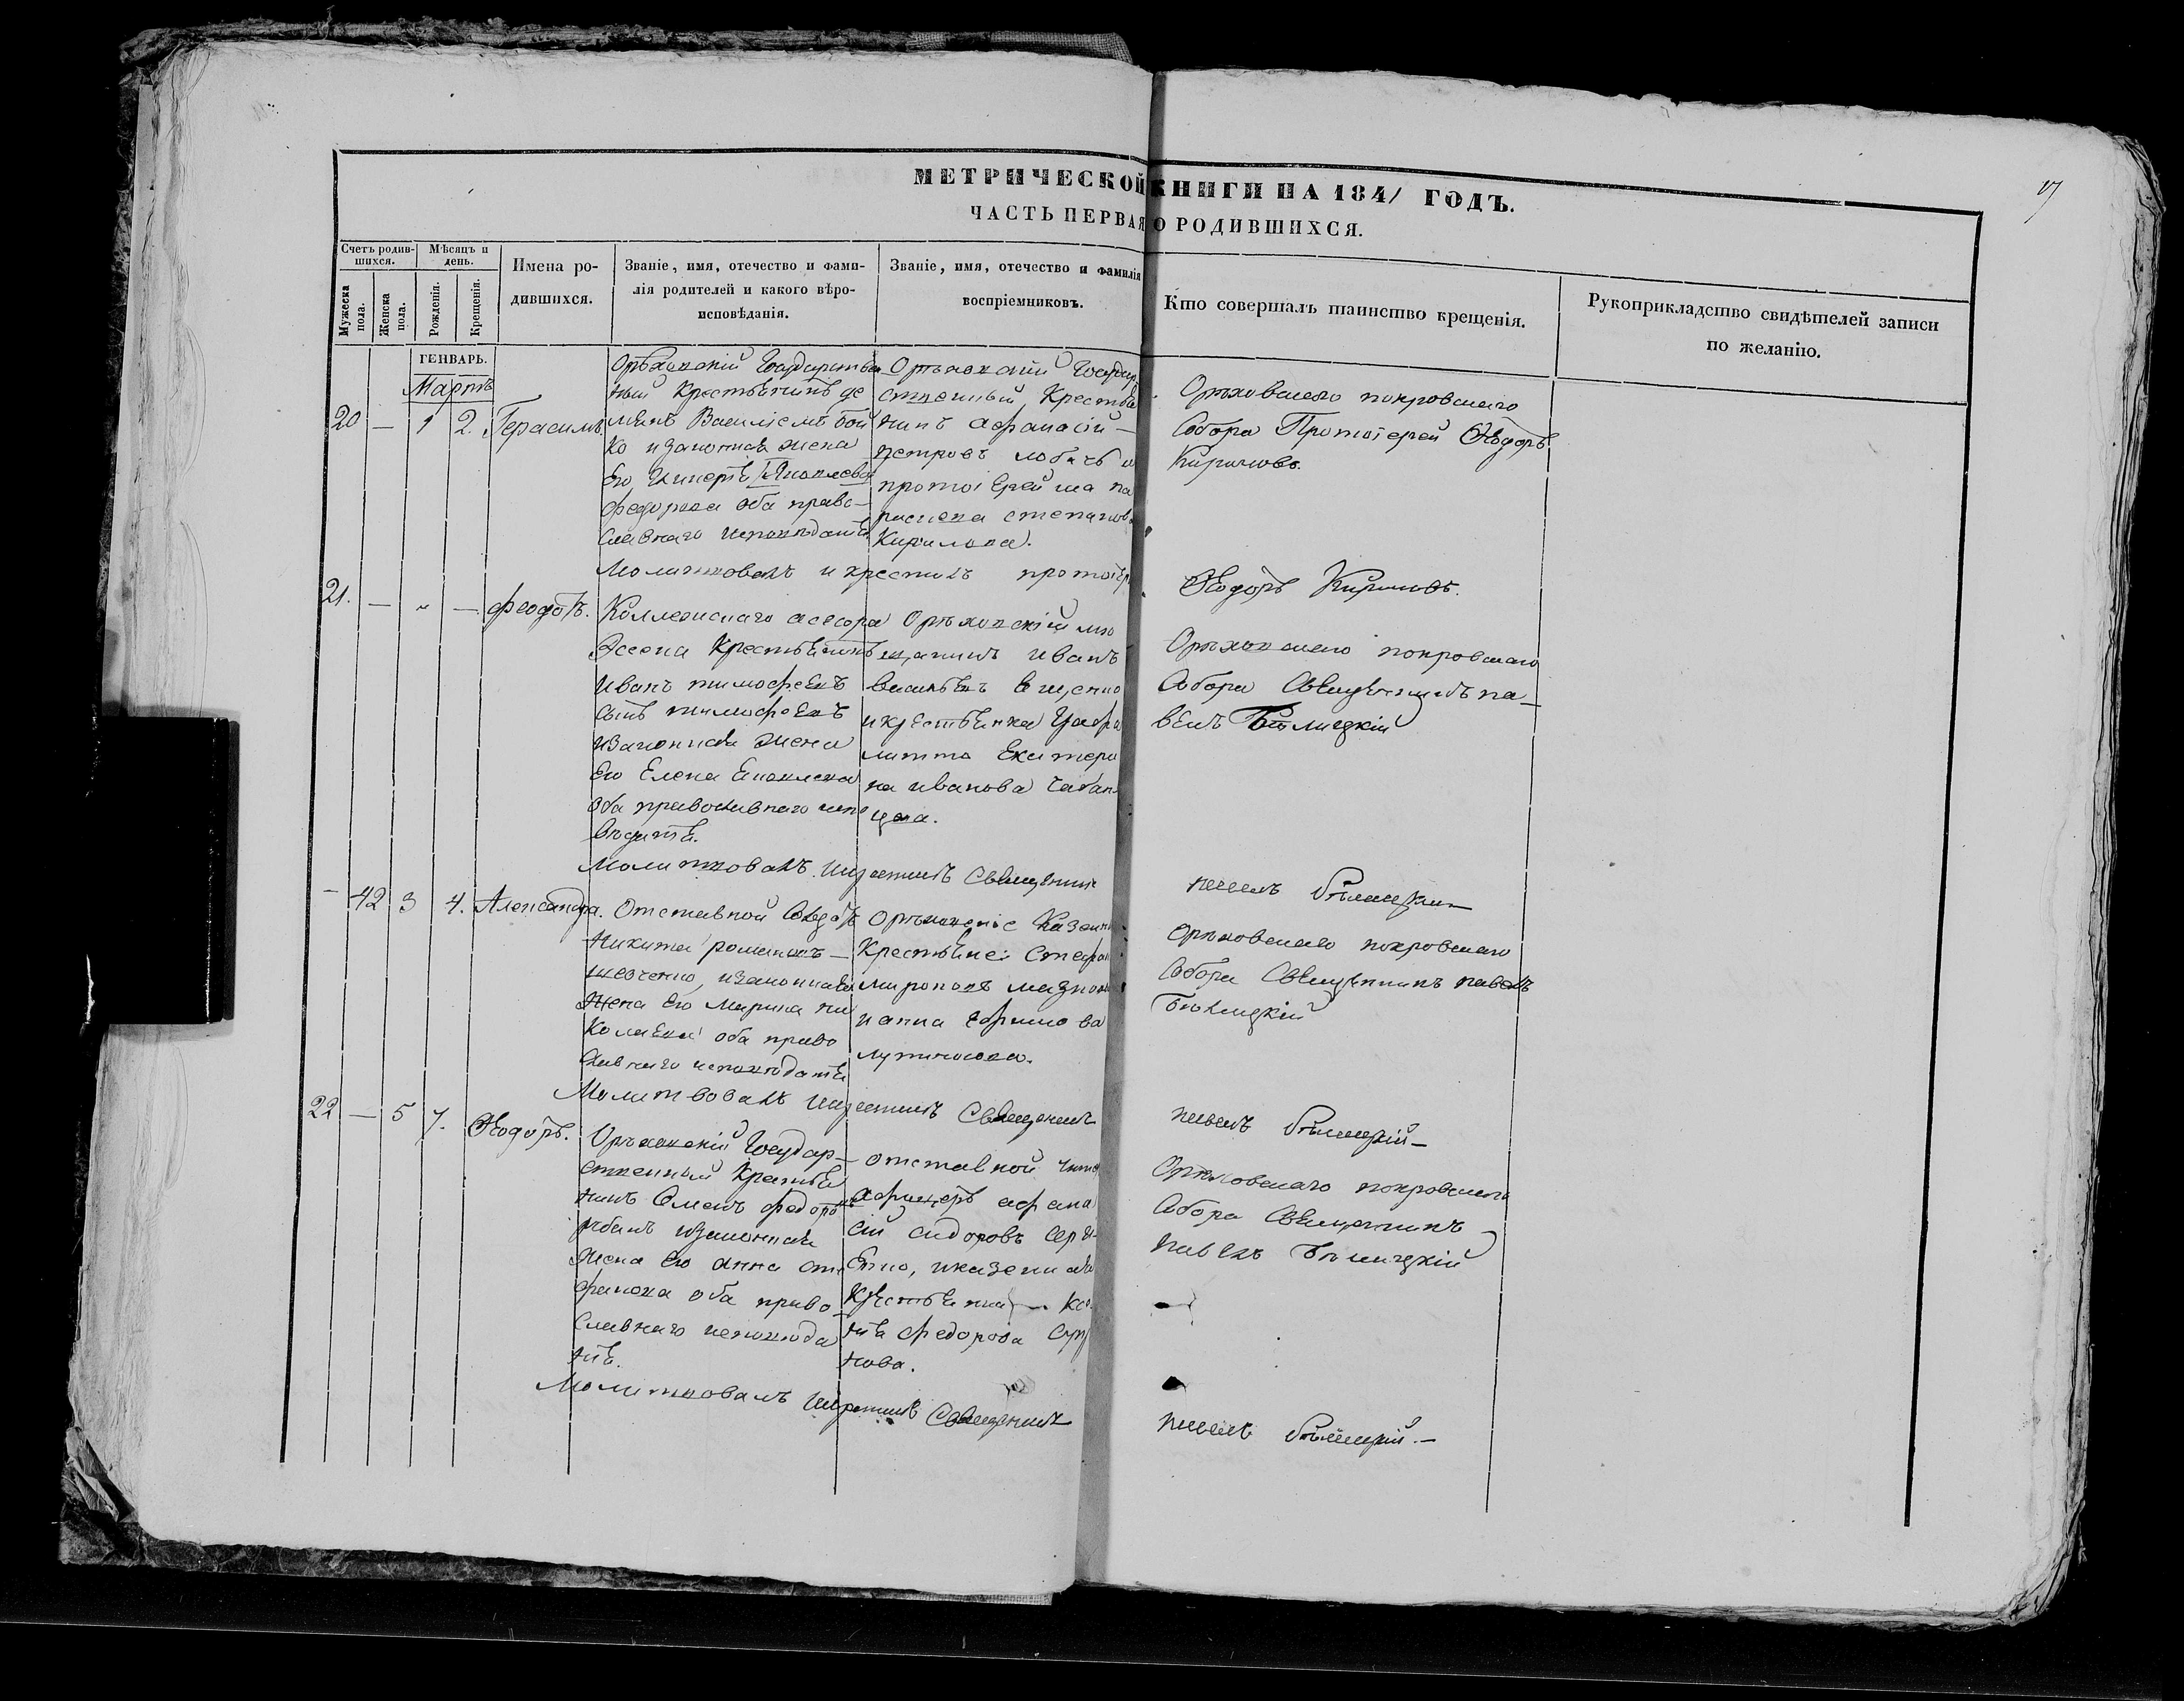 17
МЕТРИЧЕСКОЙ КНИГИ НА 1841 ГОДЪ.
ЧАСТЬ ПЕРВАЯ О РОДИВШИХСЯ.
Счетъ родив-
шихся.
Мужеска
пола.
Женска
пола.
Мѣсяцъ и
день.
Рожденія.
Крещенія.
Имена ро-
дившихся.
Званіе, имя, отечество и фами-
лія родителей и какого вѣро-
исповѣданія.
Званіе, имя, отечество и фамилія
воспріемниковъ.
Кто совершалъ таинство крещенія.
Рукоприкладство свидѣтелей записи
по желанію.
ГЕНВАРЬ.
Мартъ
20 — 1 2. Герасимъ.
Орѣховскій Государствен
ный Крестьянинъ де
мьянъ Василіевъ бой
ко изаконная жена
Его
федорова оба право-
славнаго исповѣданія
Орѣховскій Государ
ственный Крестья
нинъ Афанасій
петровъ лобачь и
протоіерейша па
раскева степанов
Кирилова.
Орѣховскаго покровскаго
Собора Протоіерей Ѳеодоръ
Кириловъ.
Молитвовалъ и крестилъ протоіер
Ѳеодоръ Кириловъ.
21. — „ — феодотъ.
Коллежскаго асесора
Эссена Крестьянинъ
Иванъ тимофеевъ
сынъ тимофеевъ
изаконная жена
Его Елена
оба православнаго испо
вѣданія.
Орѣховскій мѣ
щанинъ иванъ
васильевъ
икрестьянка Графа
литта Екатери
на иванова
Орѣховскаго покровскаго
Собора Священникъ па-
велъ Бѣлицкій
Молитвовалъ икрестилъ Священник
павелъ бѣлицкій
— 42 3 4. Александра.
Отставной Солдатъ
Никита романовъ
шевченко, изаконная
жена Его Марина ни
колаева оба право
славнаго исповѣданія
Орѣховскіе Казенн
Крестьяне: Стефан
мироновъ
и анна Ефимова
Орѣховскаго покровскаго
Собора Священникъ павелъ
Бѣлицкій
Молитвовалъ икрестилъ Священикъ
павелъ бѣлицкій—
22 — 5 7. Ѳеодоръ.
Орѣховскій Государ-
ственный Крестья
нинъ Семенъ федоровъ
рыбакъ изаконная
жена Его анна
оба право
славнаго исповѣда
нія.
отставной унтер
афицеръ афана
сій сидоровъ серги-
Енко, иказенная
Крестьянка
федорова
нова.
Орѣховскаго покровскаго
Собора Священникъ
павелъ Бѣлицкій
Молитвовалъ икрестилъ Священикъ
павелъ бѣлицкій.—